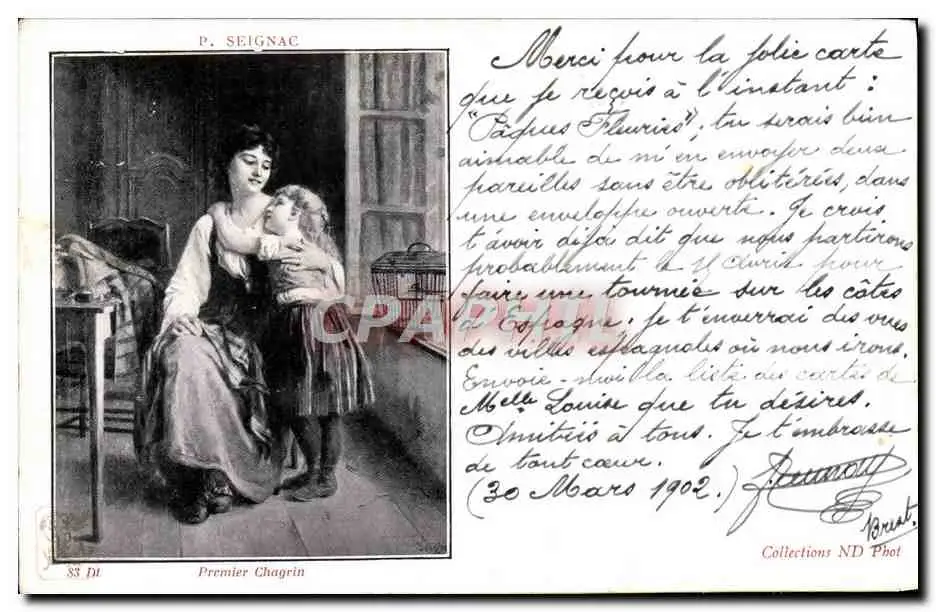 P. SEIGNAC
Merci pour la jolie carte
que je reçois à l'instant :
"Pâques Fleuries"; tu serais bien
aimable de m'en envoyer deux
pareilles sans être oblitérées, dans
une enveloppe ouverte. Je crois
t'avoir déjà dit que nous partirons
probablement le Avril pour
faire une tournée sur les côtes
d'Espagne. Je t'enverrai des vues
des villes espagnoles où nous irons.
Envoie-moi la liste des cartes de
Melle Louise que tu désires.
Amitiés à tous. Je t'embrasse
de tout cœur.
(30 Mars 1902.)
Brest.
CPAPHIL
Collections ND Phot
83 Dt Premier Chagrin